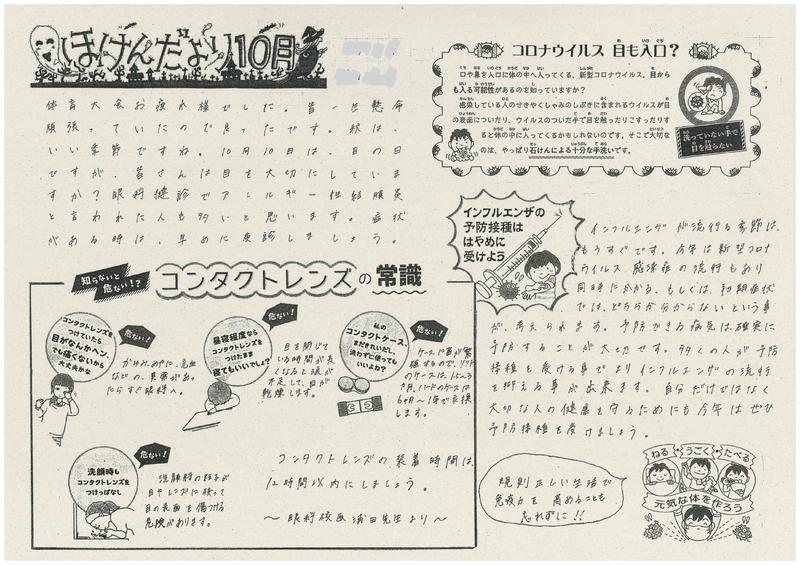 ほけんだより10月
体育大会お疲れ様でした。皆一生懸命
頑張っていたので良かったです。秋は、
いい季節ですね。10月10日は、目の日
ですが、皆さんは目を大切にしていま
すか？眼科健診でアレルギー性結膜炎
と言われた人も多いと思います。症状
がある時は、早めに受診しましょう。
コロナウイルス 目も入口？
口や鼻を入口に体の中へ入ってくる、新型コロナウイルス。目から
も入る可能性があるのを知っていますか？
感染している人のせきやくしゃみのしぶきに含まれるウイルスが目
の表面についたり、ウイルスのついた手で目を触ったりこすったりす
ると体の中に入ってくるかもしれないのです。そこで大切な
のは、やっぱり石けんによる十分な手洗いです。
洗っていない手で
目を触らない
インフルエンザの
予防接種は
はやめに
受けよう
インフルエンザが流行る季節は、
もうすぐです。今年は新型コロナ
ウイルス感染症の流行もあり
同時にかかる、もしくは、初期症状
では、どちらか分からないという事
が、考えられます。予防できる病気は確実に
予防することが大切です。多くの人が予防
接種を受ける事でよりインフルエンザの流行
を抑える事が出来ます。自分だけではなく
大切な人の健康を守るためにも今年はぜひ
予防接種を受けましょう。
知らないと
危ない！？
コンタクトレンズの常識
コンタクトレンズを
つけていたら
目がなんかヘン。
でも痛くないから
大丈夫かな
危ない！
かゆみ、めやに、充血
などの、異常があっ
たらすぐ眼科へ。
昼寝程度なら
コンタクトレンズを
つけたまま
寝てもいいでしょ？
危ない！
目を閉じて
いる時間が長
くなると涙が
不足して、目が
乾燥します。
私の
コンタクトケース、
まだきれいだし、
洗わずに使っても
いいよね？
危ない！
ケースに菌が繁
殖するので、ソフト
のケースは、1.5〜3
ヵ月、ハードのケースは
6ヵ月〜1年で交換
します。
洗顔時も
コンタクトレンズを
つけっぱなし
危ない！
洗顔料の粒子が
目やレンズに残って
目の表面を傷つける
危険があります。
コンタクトレンズの装着時間は、
12時間以内にしましょう。
〜眼科校医 濱田先生より〜
規則正しい生活で
免疫力を高めることも
忘れずに！！
ねる うごく たべる
元気な体を作ろう